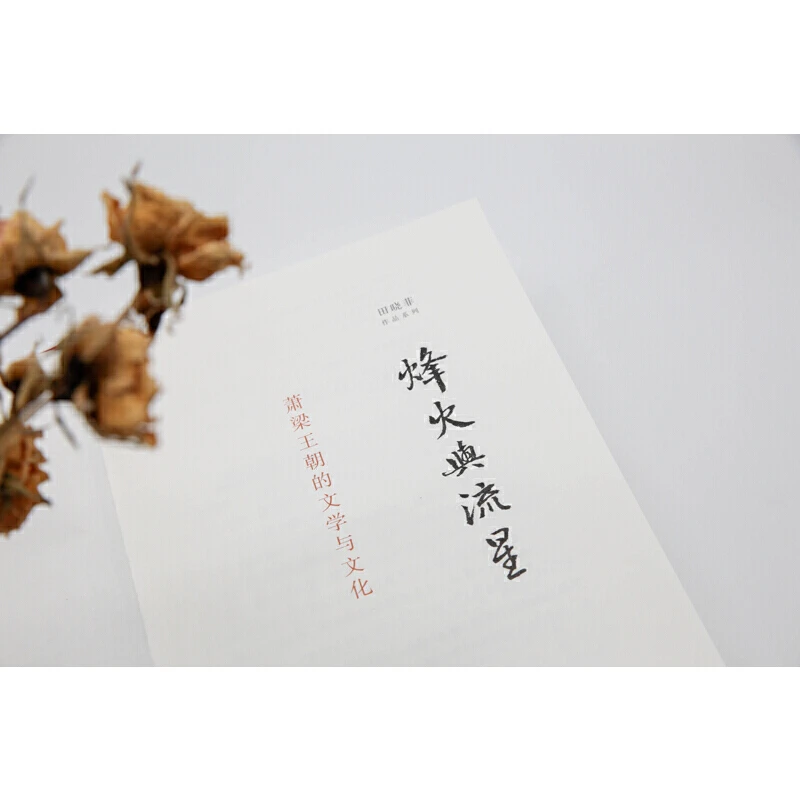 田晓菲
作品系列
烽火與流星
萧梁王朝的文学与文化